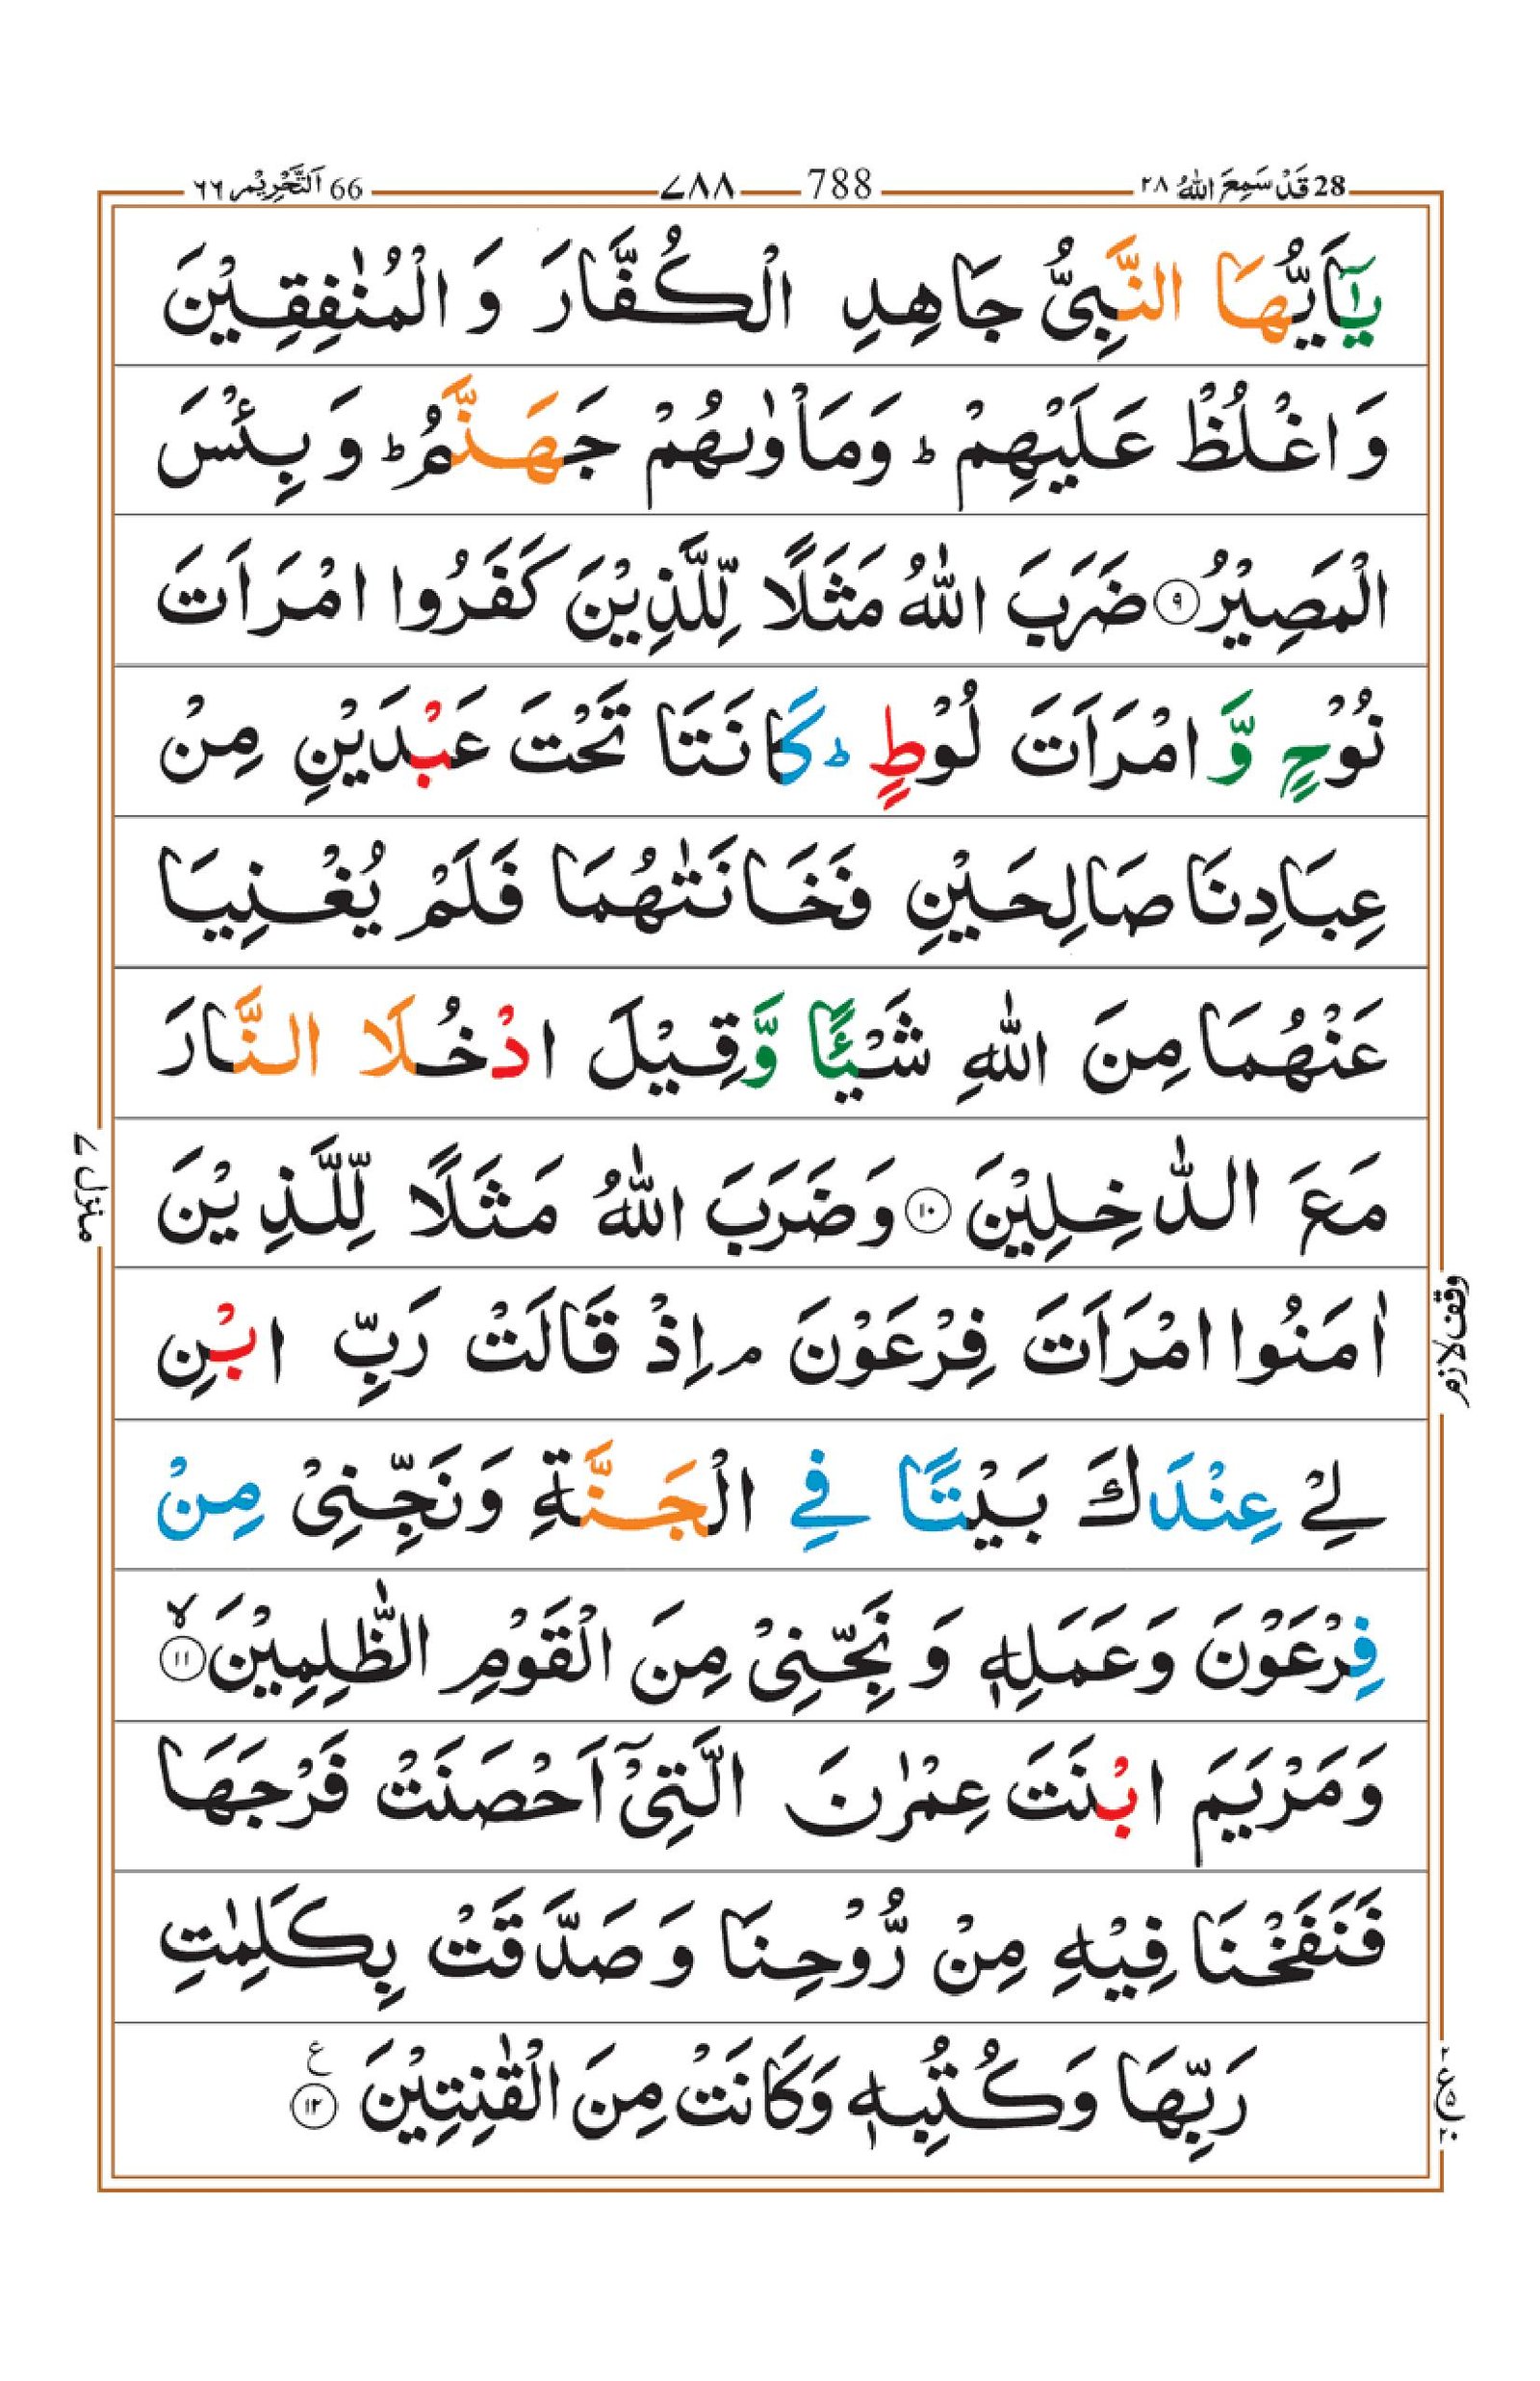 28 قَدْ سَمِعَ اللّٰهُ ٢٨
788 ٧٨٨
66 اَلتَّحْرِيْم ٦٦
يٰٓاَيُّهَا النَّبِىُّ جَاهِدِ الْكُفَّارَ وَ الْمُنٰفِقِيْنَ
وَاغْلُظْ عَلَيْهِمْ ؕ وَمَاْوٰىهُمْ جَهَنَّمُ ؕ وَ بِئْسَ
الْمَصِيْرُ ۹ ضَرَبَ اللّٰهُ مَثَلًا لِّلَّذِيْنَ كَفَرُوا امْرَاَتَ
نُوْحٍ وَّ امْرَاَتَ لُوْطٍ ؕ كَانَتَا تَحْتَ عَبْدَيْنِ مِنْ
عِبَادِنَا صَالِحَيْنِ فَخَانَتٰهُمَا فَلَمْ يُغْنِيَا
عَنْهُمَا مِنَ اللّٰهِ شَيْـًٔا وَّقِيْلَ ادْخُلَا النَّارَ
مَعَ الدّٰخِلِيْنَ ۱۰ وَضَرَبَ اللّٰهُ مَثَلًا لِّلَّذِيْنَ
اٰمَنُوا امْرَاَتَ فِرْعَوْنَ ۘ اِذْ قَالَتْ رَبِّ ابْنِ
لِىْ عِنْدَكَ بَيْتًا فِى الْجَنَّةِ وَنَجِّنِىْ مِنْ
فِرْعَوْنَ وَعَمَلِهٖ وَ نَجِّنِىْ مِنَ الْقَوْمِ الظّٰلِمِيْنَ ۙ ۱۱
وَمَرْيَمَ ابْنَتَ عِمْرٰنَ الَّتِىْٓ اَحْصَنَتْ فَرْجَهَا
فَنَفَخْنَا فِيْهِ مِنْ رُّوْحِنَا وَ صَدَّقَتْ بِكَلِمٰتِ
رَبِّهَا وَكُتُبِهٖ وَكَانَتْ مِنَ الْقٰنِتِيْنَ ۱۲ ع
منزل ٧
وقف لازم
٢ ع ٥ ٢٠